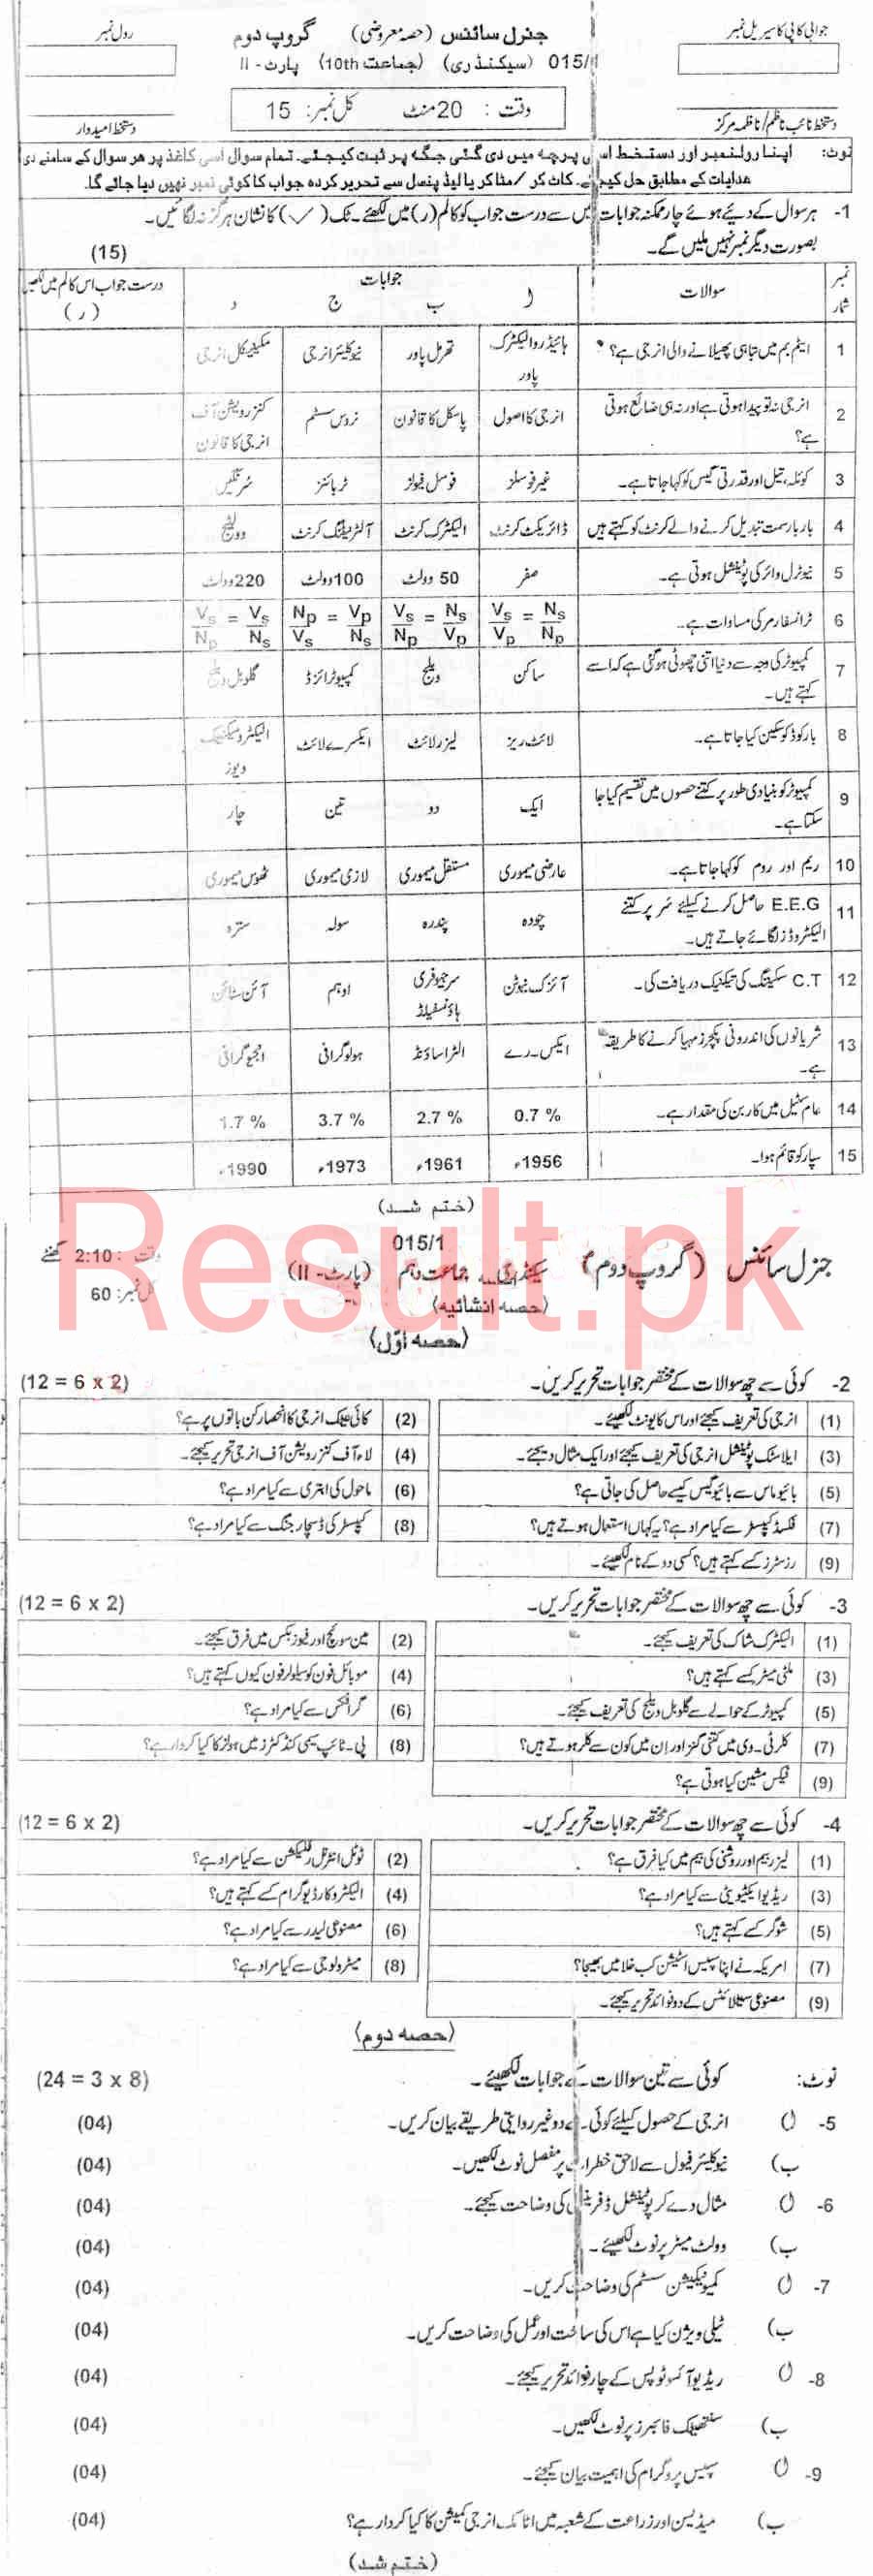 جوابی کاپی کا سیریل نمبر
جنرل سائنس (حصہ معروضی) گروپ دوم
رول نمبر
015/1 (سیکنڈری) (جماعت 10th) پارٹ - II
وقت : 20 منٹ کل نمبر: 15
دستخط نائب ناظم/ناظمہ مرکز
دستخط امیدوار
نوٹ: اپنا رولنمبر اور دستخط اس پرچہ میں دی گئی جگہ پر ثبت کیجئے۔ تمام سوال اسی کاغذ پر ھر سوال کے سامنے دی
ھدایات کے مطابق حل کیجئے۔ کاٹ کر /مٹا کر یا لیڈ پنسل سے تحریر کردہ جواب کا کوئی نمبر نھیں دیا جائے گا۔
1- ہر سوال کے دیئے ہوئے چار ممکنہ جوابات میں سے درست جواب کو کالم (ر) میں لکھئے۔ ٹک (✓) کا نشان ہرگز نہ لگائیں۔
بصورت دیگر نمبر نہیں ملیں گے۔ (15)
نمبر شمار سوالات جوابات درست جواب اس کالم میں لکھیں
ا ب ج د (ر)
1 ایٹم بم میں تباہی پھیلانے والی انرجی ہے؟ ہائیڈرو الیکٹرک پاور تھرمل پاور نیوکلیئر انرجی مکینیکل انرجی
2 انرجی نہ تو پیدا ہوتی ہے اور نہ ہی ضائع ہوتی ہے؟ انرجی کا اصول پاسکل کا قانون نروس سسٹم کنزرویشن آف انرجی کا قانون
3 کوئلہ، تیل اور قدرتی گیس کو کہا جاتا ہے۔ غیر فوسلز فوسل فیولز ٹربائنز سرنگیں
4 بار بار سمت تبدیل کرنے والے کرنٹ کو کہتے ہیں ڈائریکٹ کرنٹ الیکٹرک کرنٹ آلٹرنیٹنگ کرنٹ وولٹیج
5 نیوٹرل وائر کی پوٹینشل ہوتی ہے۔ صفر 50 وولٹ 100 وولٹ 220 وولٹ
6 ٹرانسفارمر کی مساوات ہے۔ Vs/Vp = Ns/Np Vs/Np = Ns/Vp Np/Vs = Vp/Ns Vs/Np = Vs/Ns
7 کمپیوٹر کی وجہ سے دنیا اتنی چھوٹی ہو گئی ہے کہ اسے کہتے ہیں۔ ساکن ویلج کمپیوٹرائزڈ گلوبل ویلج
8 بار کوڈ کو سکین کیا جاتا ہے۔ لائٹ ریز لیزر لائٹ ایکسرے لائٹ الیکٹرومیگنیٹک ویوز
9 کمپیوٹر کو بنیادی طور پر کتنے حصوں میں تقسیم کیا جا سکتا ہے۔ ایک دو تین چار
10 ریم اور روم کو کہا جاتا ہے۔ عارضی میموری مستقل میموری لازمی میموری ٹھوس میموری
11 E.E.G حاصل کرنے کیلئے سر پر کتنے الیکٹروڈز لگائے جاتے ہیں۔ چودہ پندرہ سولہ سترہ
12 C.T سکیننگ کی تکنیک دریافت کی۔ آئزک نیوٹن سر جیوفری ہاؤنسفیلڈ اوہم آئن سٹائن
13 شریانوں کی اندرونی پکچرز مہیا کرنے کا طریقہ ہے۔ ایکس۔رے الٹراساؤنڈ ہولوگرافی انجیوگرافی
14 عام سٹیل میں کاربن کی مقدار ہے۔ 0.7 % 2.7 % 3.7 % 1.7 %
15 سپارکو قائم ہوا۔ 1956ء 1961ء 1973ء 1990ء
(ختم شد)
Result.pk
015/1
جنرل سائنس (گروپ دوم) سیکنڈری جماعت دہم (پارٹ - II) وقت : 2:10 گھنٹے
(حصہ انشائیہ) کل نمبر: 60
(حصہ اوّل)
2- کوئی سے چھ سوالات کے مختصر جوابات تحریر کریں۔ (12 = 6 x 2)
(1) انرجی کی تعریف کیجئے اور اس کا یونٹ لکھیئے۔ (2) کائی نیٹک انرجی کا انحصار کن باتوں پر ہے؟
(3) ایلاسٹک پوٹینشل انرجی کی تعریف کیجئے اور ایک مثال دیجئے۔ (4) لاء آف کنزرویشن آف انرجی تحریر کیجئے۔
(5) بائیو ماس سے بائیو گیس کیسے حاصل کی جاتی ہے؟ (6) ماحول کی ابتری سے کیا مراد ہے؟
(7) فکسڈ کپیسٹر سے کیا مراد ہے؟ یہ کہاں استعمال ہوتے ہیں؟ (8) کپیسٹر کی ڈسچارجنگ سے کیا مراد ہے؟
(9) رزسٹرز کسے کہتے ہیں؟ کسی دو کے نام لکھیئے۔
3- کوئی سے چھ سوالات کے مختصر جوابات تحریر کریں۔ (12 = 6 x 2)
(1) الیکٹرک شاک کی تعریف کیجئے۔ (2) مین سوئچ اور فیوز بکس میں فرق کیجئے۔
(3) ملٹی میٹر کسے کہتے ہیں؟ (4) موبائل فون کو سیلولر فون کیوں کہتے ہیں؟
(5) کمپیوٹر کے حوالے سے گلوبل ویلج کی تعریف کیجئے۔ (6) گرافکس سے کیا مراد ہے؟
(7) کلر ٹی۔وی میں کتنی گنز اور ان میں کون سے کلر ہوتے ہیں؟ (8) پی۔ٹائپ سیمی کنڈکٹرز میں ہولز کا کیا کردار ہے؟
(9) فیکس مشین کیا ہوتی ہے؟
4- کوئی سے چھ سوالات کے مختصر جوابات تحریر کریں۔ (12 = 6 x 2)
(1) لیزر بیم اور روشنی کی بیم میں کیا فرق ہے؟ (2) ٹوٹل انٹرنل رفلیکشن سے کیا مراد ہے؟
(3) ریڈیو ایکٹیویٹی سے کیا مراد ہے؟ (4) الیکٹرو کارڈیوگرام کسے کہتے ہیں؟
(5) شوگر کسے کہتے ہیں؟ (6) مصنوعی لیدر سے کیا مراد ہے؟
(7) امریکہ نے اپنا سپیس اسٹیشن کب خلا میں بھیجا؟ (8) میٹرولوجی سے کیا مراد ہے؟
(9) مصنوعی سیٹلائٹس کے دو فوائد تحریر کیجئے۔
(حصہ دوم)
نوٹ: کوئی سے تین سوالات کے جوابات لکھیئے۔ (24 = 3 x 8)
5- ا) انرجی کے حصول کیلئے کوئی سے دو غیر روایتی طریقے بیان کریں۔ (04)
ب) نیوکلیئر فیول سے لاحق خطرات پر مفصل نوٹ لکھیں۔ (04)
6- ا) مثال دے کر پوٹینشل ڈفرینس کی وضاحت کیجئے۔ (04)
ب) وولٹ میٹر پر نوٹ لکھیئے۔ (04)
7- ا) کمیونیکیشن سسٹم کی وضاحت کریں۔ (04)
ب) ٹیلی ویژن کیا ہے اس کی ساخت اور عمل کی وضاحت کریں۔ (04)
8- ا) ریڈیو آئسوٹوپس کے چار فوائد تحریر کیجئے۔ (04)
ب) سنتھیٹک فائبرز پر نوٹ لکھیں۔ (04)
9- ا) سپیس پروگرام کی اہمیت بیان کیجئے۔ (04)
ب) میڈیسن اور زراعت کے شعبہ میں اٹامک انرجی کمیشن کا کیا کردار ہے؟ (04)
(ختم شد)